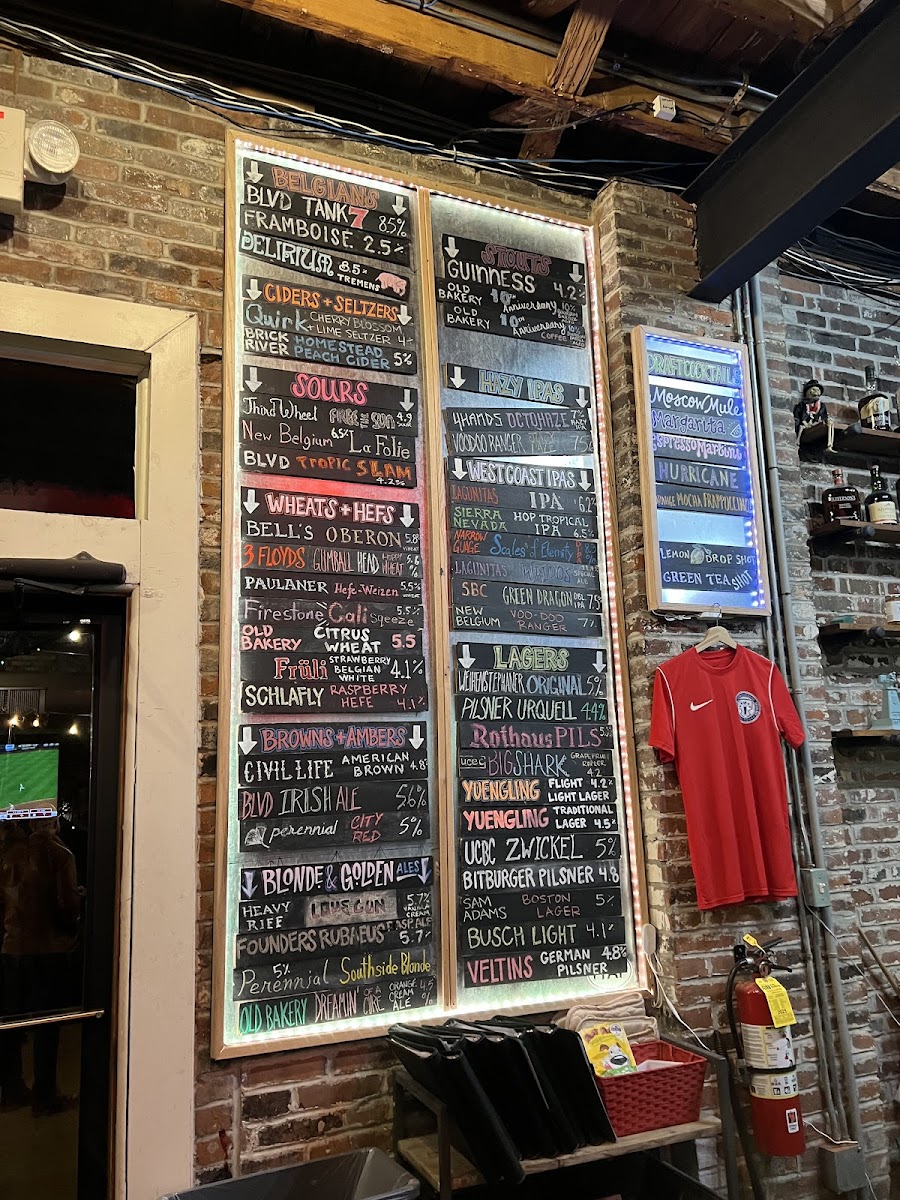 BELGIANS
BLVD TANK 7 8.5%
FRAMBOISE 2.5%
DELIRIUM 8.5%
TREMENS
CIDERS + SELTZERS
Quirk CHERRY BLOSSOM
+ LIME SELTZER 4%
BRICK RIVER HOMESTEAD
PEACH CIDER 5%
SOURS
Third Wheel FREE THE SUN 4.9
SOUR
New Belgium 6.5% La Folie
BLVD TROPIC SLAM
4.2%
WHEATS + HEFS
BELL'S OBERON 5.8%
WHEAT
3 FLOYDS GUMBALL HEAD HOPPY WHEAT 5.6%
PAULANER Hefe-Weizen 5.5%
Firestone Cali Squeeze 5.5%
OLD BAKERY CITRUS WHEAT 5.5
Früli STRAWBERRY BELGIAN WHITE 4.1%
SCHLAFLY RASPBERRY HEFE 4.1%
BROWNS + AMBERS
CIVIL LIFE AMERICAN BROWN 4.8%
BLVD IRISH ALE 5.6%
perennial CITY RED 5%
BLONDE & GOLDEN ALES
HEAVY RIFF LOVE GUN 5.7%
VANILLA CREAM ALE
FOUNDERS RUBAEUS RASP. ALE 5.7%
Perennial 5% Southside Blonde
OLD BAKERY DREAMIN ORANGE CREAM ALE 4.5%
STOUTS
GUINNESS 4.2%
OLD BAKERY 10th Anniversary 10%
OLD BAKERY 10th Anniversary 10%
COFFEE
HAZY IPAS
4HANDS OCTOHAZE 7%
VOODOO RANGER
WEST COAST IPAS
LAGUNITAS IPA 6.2%
SIERRA NEVADA HOP TROPICAL IPA 6.5%
NARROW GUAGE Scales of Density
LAGUNITAS
SBC GREEN DRAGON DBL IPA 7.5%
NEW BELGIUM VOO-DOO RANGER 7%
LAGERS
WEIHENSTEPHANER ORIGINAL 5%
PILSNER URQUELL 4.4%
Rothaus PILS
UCBC BIG SHARK GRAPEFRUIT RADLER 4.2
YUENGLING FLIGHT 4.2%
LIGHT LAGER
YUENGLING TRADITIONAL
LAGER 4.5%
UCBC ZWICKEL 5%
BITBURGER PILSNER 4.8
SAM ADAMS BOSTON LAGER 5%
BUSCH LIGHT 4.1%
VELTINS GERMAN PILSNER 4.8%
DRAFT COCKTAILS
Moscow Mule
Margarita
Espresso Martini
HURRICANE
MOCHA FRAPPUCCINO
LEMON DROP SHOT
GREEN TEA SHOT